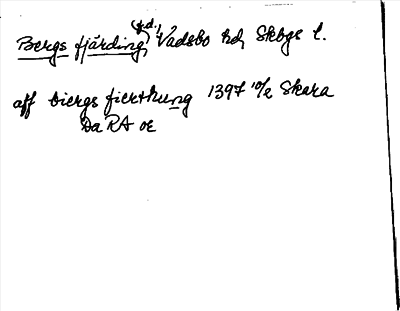 Bergs fjärding (g.d.), Vadsbo hd, Skbgs l.
aff biergs fierthung 1397 10/2 Skara
Da RA oe